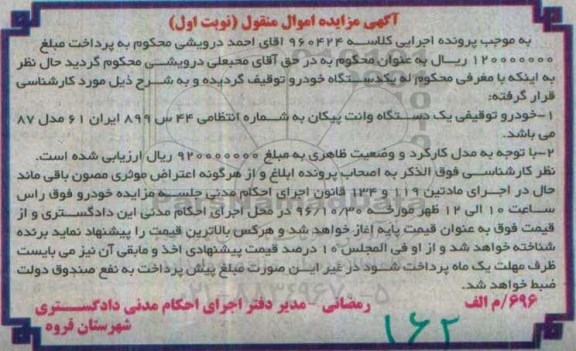 آگهی مزایده اموال منقول (نوبت اول)
به موجب پرونده اجرایی کلاسه ۹۶۰۴۲۴ اقای احمد درویشی محکوم به پرداخت مبلغ
۱۲۰۰۰۰۰۰۰ ریال به عنوان محکوم به در حق آقای محبعلی درویشی محکوم گردید حال نظر
به اینکه با معرفی محکوم له یکدستگاه خودرو توقیف گردیده و به شرح ذیل مورد کارشناسی
قرار گرفته:
۱-خودرو توقیفی یک دستگاه وانت پیکان به شماره انتظامی ۴۴ س ۸۹۹ ایران ۶۱ مدل ۸۷
می باشد.
۲-با توجه به مدل کارکرد و وضعیت ظاهری به مبلغ ۹۲۰۰۰۰۰۰ ریال ارزیابی شده است.
نظر کارشناسی فوق الذکر به اصحاب پرونده ابلاغ و از هرگونه اعتراض موثری مصون باقی ماند
حال در اجرای مادتین ۱۱۹ و ۱۳۴ قانون اجرای احکام مدنی جلسه مزایده خودرو فوق راس
ساعت ۱۰ الی ۱۲ ظهر مورخه ۹۶/۱۰/۳۰ در محل اجرای احکام مدنی این دادگستری و از
قیمت فوق به عنوان قیمت پایه اغاز خواهد شد و هرکس بالاترین قیمت را پیشنهاد نماید برنده
شناخته خواهد شد و از او فی المجلس ۱۰ درصد قیمت پیشنهادی اخذ و مابقی آن نیز می بایست
ظرف مهلت یک ماه پرداخت شود در غیر این صورت مبلغ پیش پرداخت به نفع صندوق دولت
ضبط خواهد شد.
۶۹۶/م الف رمضانی -مدیر دفتر اجرای احکام مدنی دادگستری
شهرستان قروه
۱۶۲
ParsNamadData